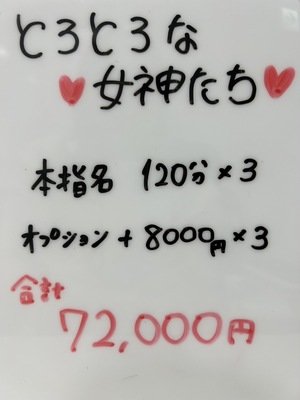 とろとろな
♥女神たち♥
本指名 120分×3
オプション + 8000円×3
合計
72,000円